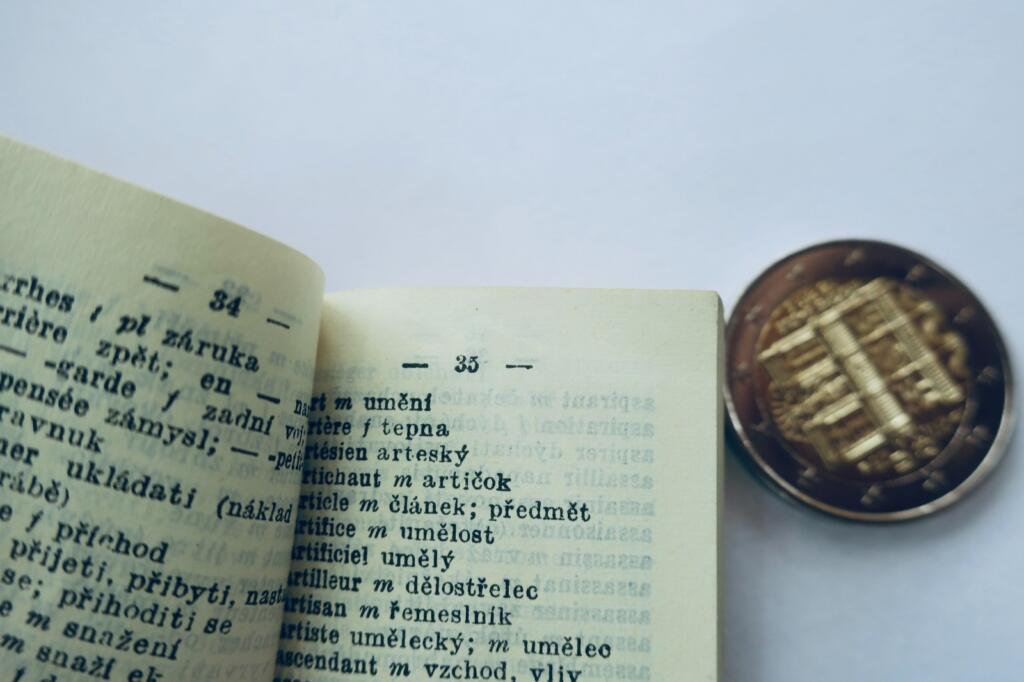 — 34 —
rrhes f pl záruka
rrière zpět; en —
— -garde f zadní voj;
pensée zámysl; — -petit
ravnuk
ner ukládati (náklad
rábě)
e f příchod
přijeti, přibyti, nast
se; přihoditi se
e m snažení
m snaží ek
— 35 —
rt m umění
rtère f tepna
rtésien arteský
rtichaut m artičok
rticle m článek; předmět
rtifice m umělost
rtificiel umělý
rtilleur m dělostřelec
rtisan m řemeslník
rtiste umělecký; m umělec
ascendant m vzchod, vliv